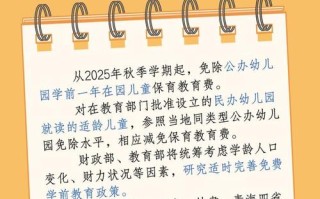 从2025年秋季学期起，免除公办幼儿
园学前一年在园儿童保育教育费。
对在教育部门批准设立的民办幼儿园
就读的适龄儿童，参照当地同类型公办幼儿
园免除水平，相应减免保育教育费。
财政部、教育部将统筹考虑学龄人口
变化、财力状况等因素，研究适时完善免费
学前教育政策。